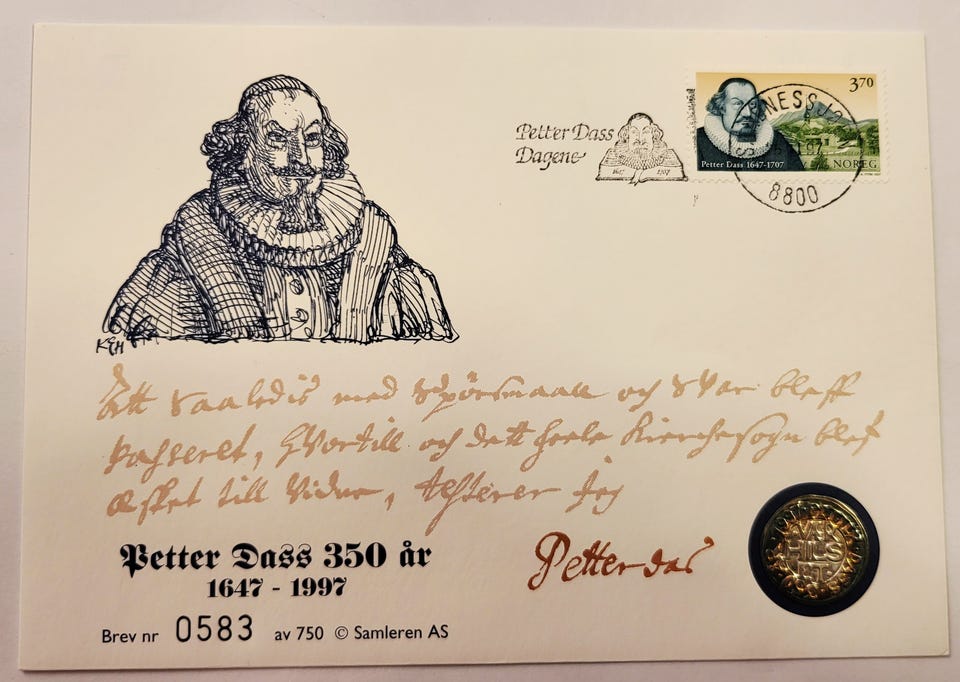 Petter Dass
Dagene
1647 1707
370
Petter Dass 1647-1707
NOREG
8800
KEH
Ett saaledis med Spörsmaall og Svar bleff
passeret, hvortill och dett heele Kirchesogn blef
æsket till Vidne, testerer Jeg
Petter das
Petter Dass 350 år
1647 - 1997
Brev nr 0583 av 750 © Samleren AS